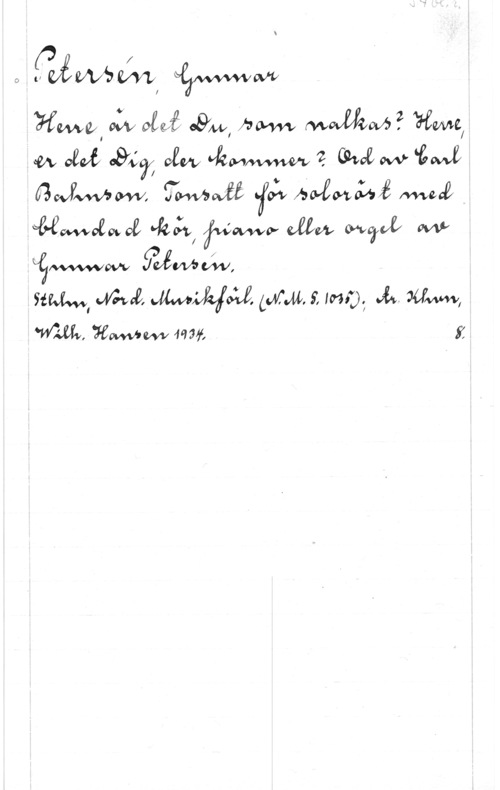 Petersén, Gunnar
Herre, är det Du, som nalkas? Herre,
er det Dig, der kommer? Ord av Carl
Bahnson. Tonsatt för soloröst med
blandad kör, piano eller orgel av
Gunnar Petersén.
Sthlm, Nord. Musikförl. (N.M.S. 1035); Khvn,
Wilh. Hansen 1934. 8.